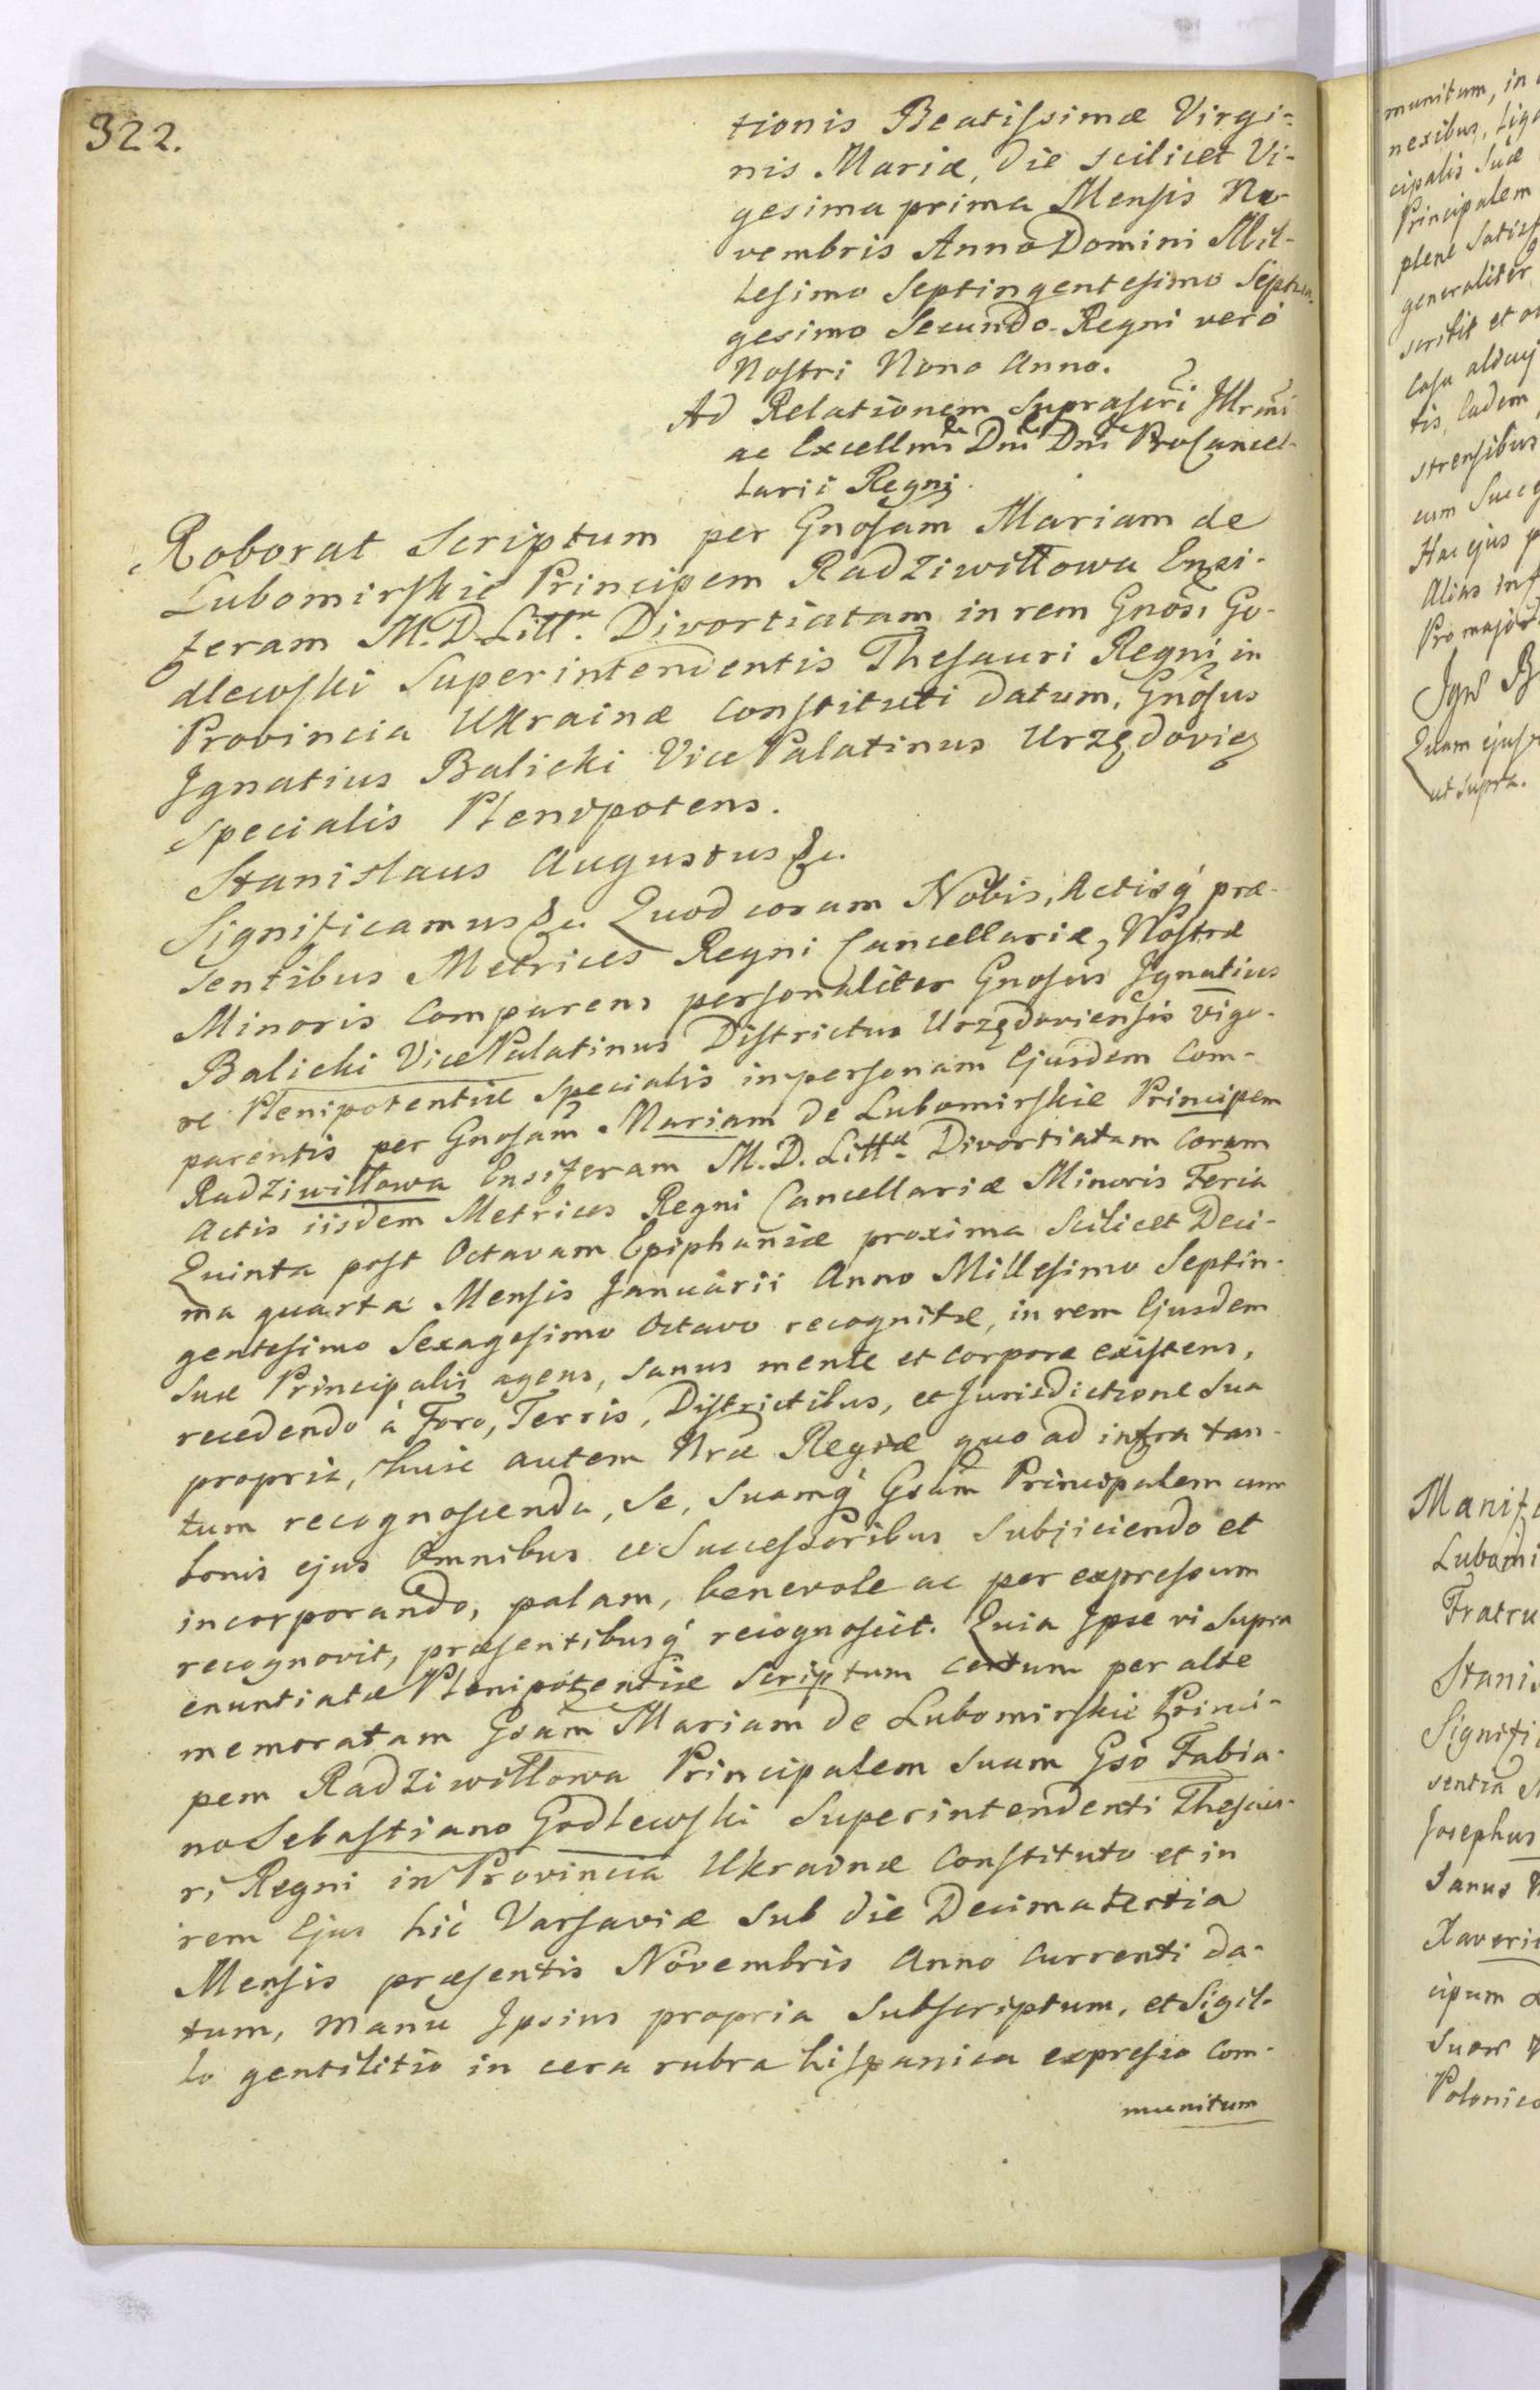 322.
tionis Beatissimæ Virgi-
nis Mariæ, die scilicet Vi-
gesima prima Mensis No-
vembris Anno Domini Mil-
lesimo Septingentesimo Septua-
gesimo Secundo Regni verò
Nostri Nono Anno.
Ad Relationem Suprascri Illrmi
ac Excellmi Dni Dni ProCancel-
larii Regni.
Roborat Scriptum per Gnosam Mariam de
Lubomirskie Principem Radziwiłłowa Ensi-
feram M. D. Litt. Divortiatam in rem Gnosi Go-
dlewski Superintendentis Thesauri Regni in
Provincia Ukrainæ constituti datum, Gnosus
Ignatius Balicki VicePalatinus Urzędovien
Specialis Plenipotens.
Stanislaus Augustus &c.
Significamus &c. Quod coram Nobis, Actisq præ-
sentibus Metrices Regni Cancellariæ Nostræ
Minoris Comparens personaliter Gnosus Ignatius
Balicki VicePalatinus Districtus Urzędoviensis vigo-
re Plenipotentiæ Specialis in personam Ejusdem Com-
parentis per Gnosam Mariam de Lubomirskie Principem
Radziwiłłowa Ensiferam M. D. Litt. Divortiatam Coram
Actis iisdem Metrices Regni Cancellariæ Minoris Feria
Quinta post Octavam Epiphaniæ proxima Scilicet Deci-
ma quarta Mensis Januarii Anno Millesimo Septin-
gentesimo Sexagesimo Octavo recognitæ, in rem Ejusdem
Suæ Principalis agens, Sanus mente et corpore existens,
recedendo à Foro, Terris, Districtibus, et Jurisdictione Sua
propria, huic autem Nræ Regiæ quo ad infra tan-
tum recognoscenda, Se, Suamq Gsam Principalem cum
bonis ejus Omnibus ac Successoribus Subjiciendo et
incorporando, palam, benevole ac per expressum
recognovit, præsentibusq recognoscit. Quia Ipse vi Supra
enuntiatæ Plenipotentiæ Scriptum certum per alte
memoratam Gsam Mariam de Lubomirskie Princi-
pem Radziwiłłowa Principalem Suam Gso Fabia-
no Sebastiano Godlewski Superintendenti Thesau-
ri Regni in Provincia Ukrainæ Constituto et in
rem Ejus hic Varsaviæ Sub die Decima tertia
Mensis præsentis Novembris Anno Currenti da-
tum, manu Ipsius propria Subscriptum, et Sigil-
lo gentilitio in cera rubra hispanica expresso Com-
munitum
munitum, in
nexibus,
cipalis Suæ
Principalem
plene
generaliter
et
Casu
tis, Eadem
strensibus
cum
Hac ejus
Alias
Pro
Quam
ut supra.

Lubomi
Fratru
Stanis
Signifi
sentia
Josephus
Sanus
Xaveri
cipum
Suor
Polonico